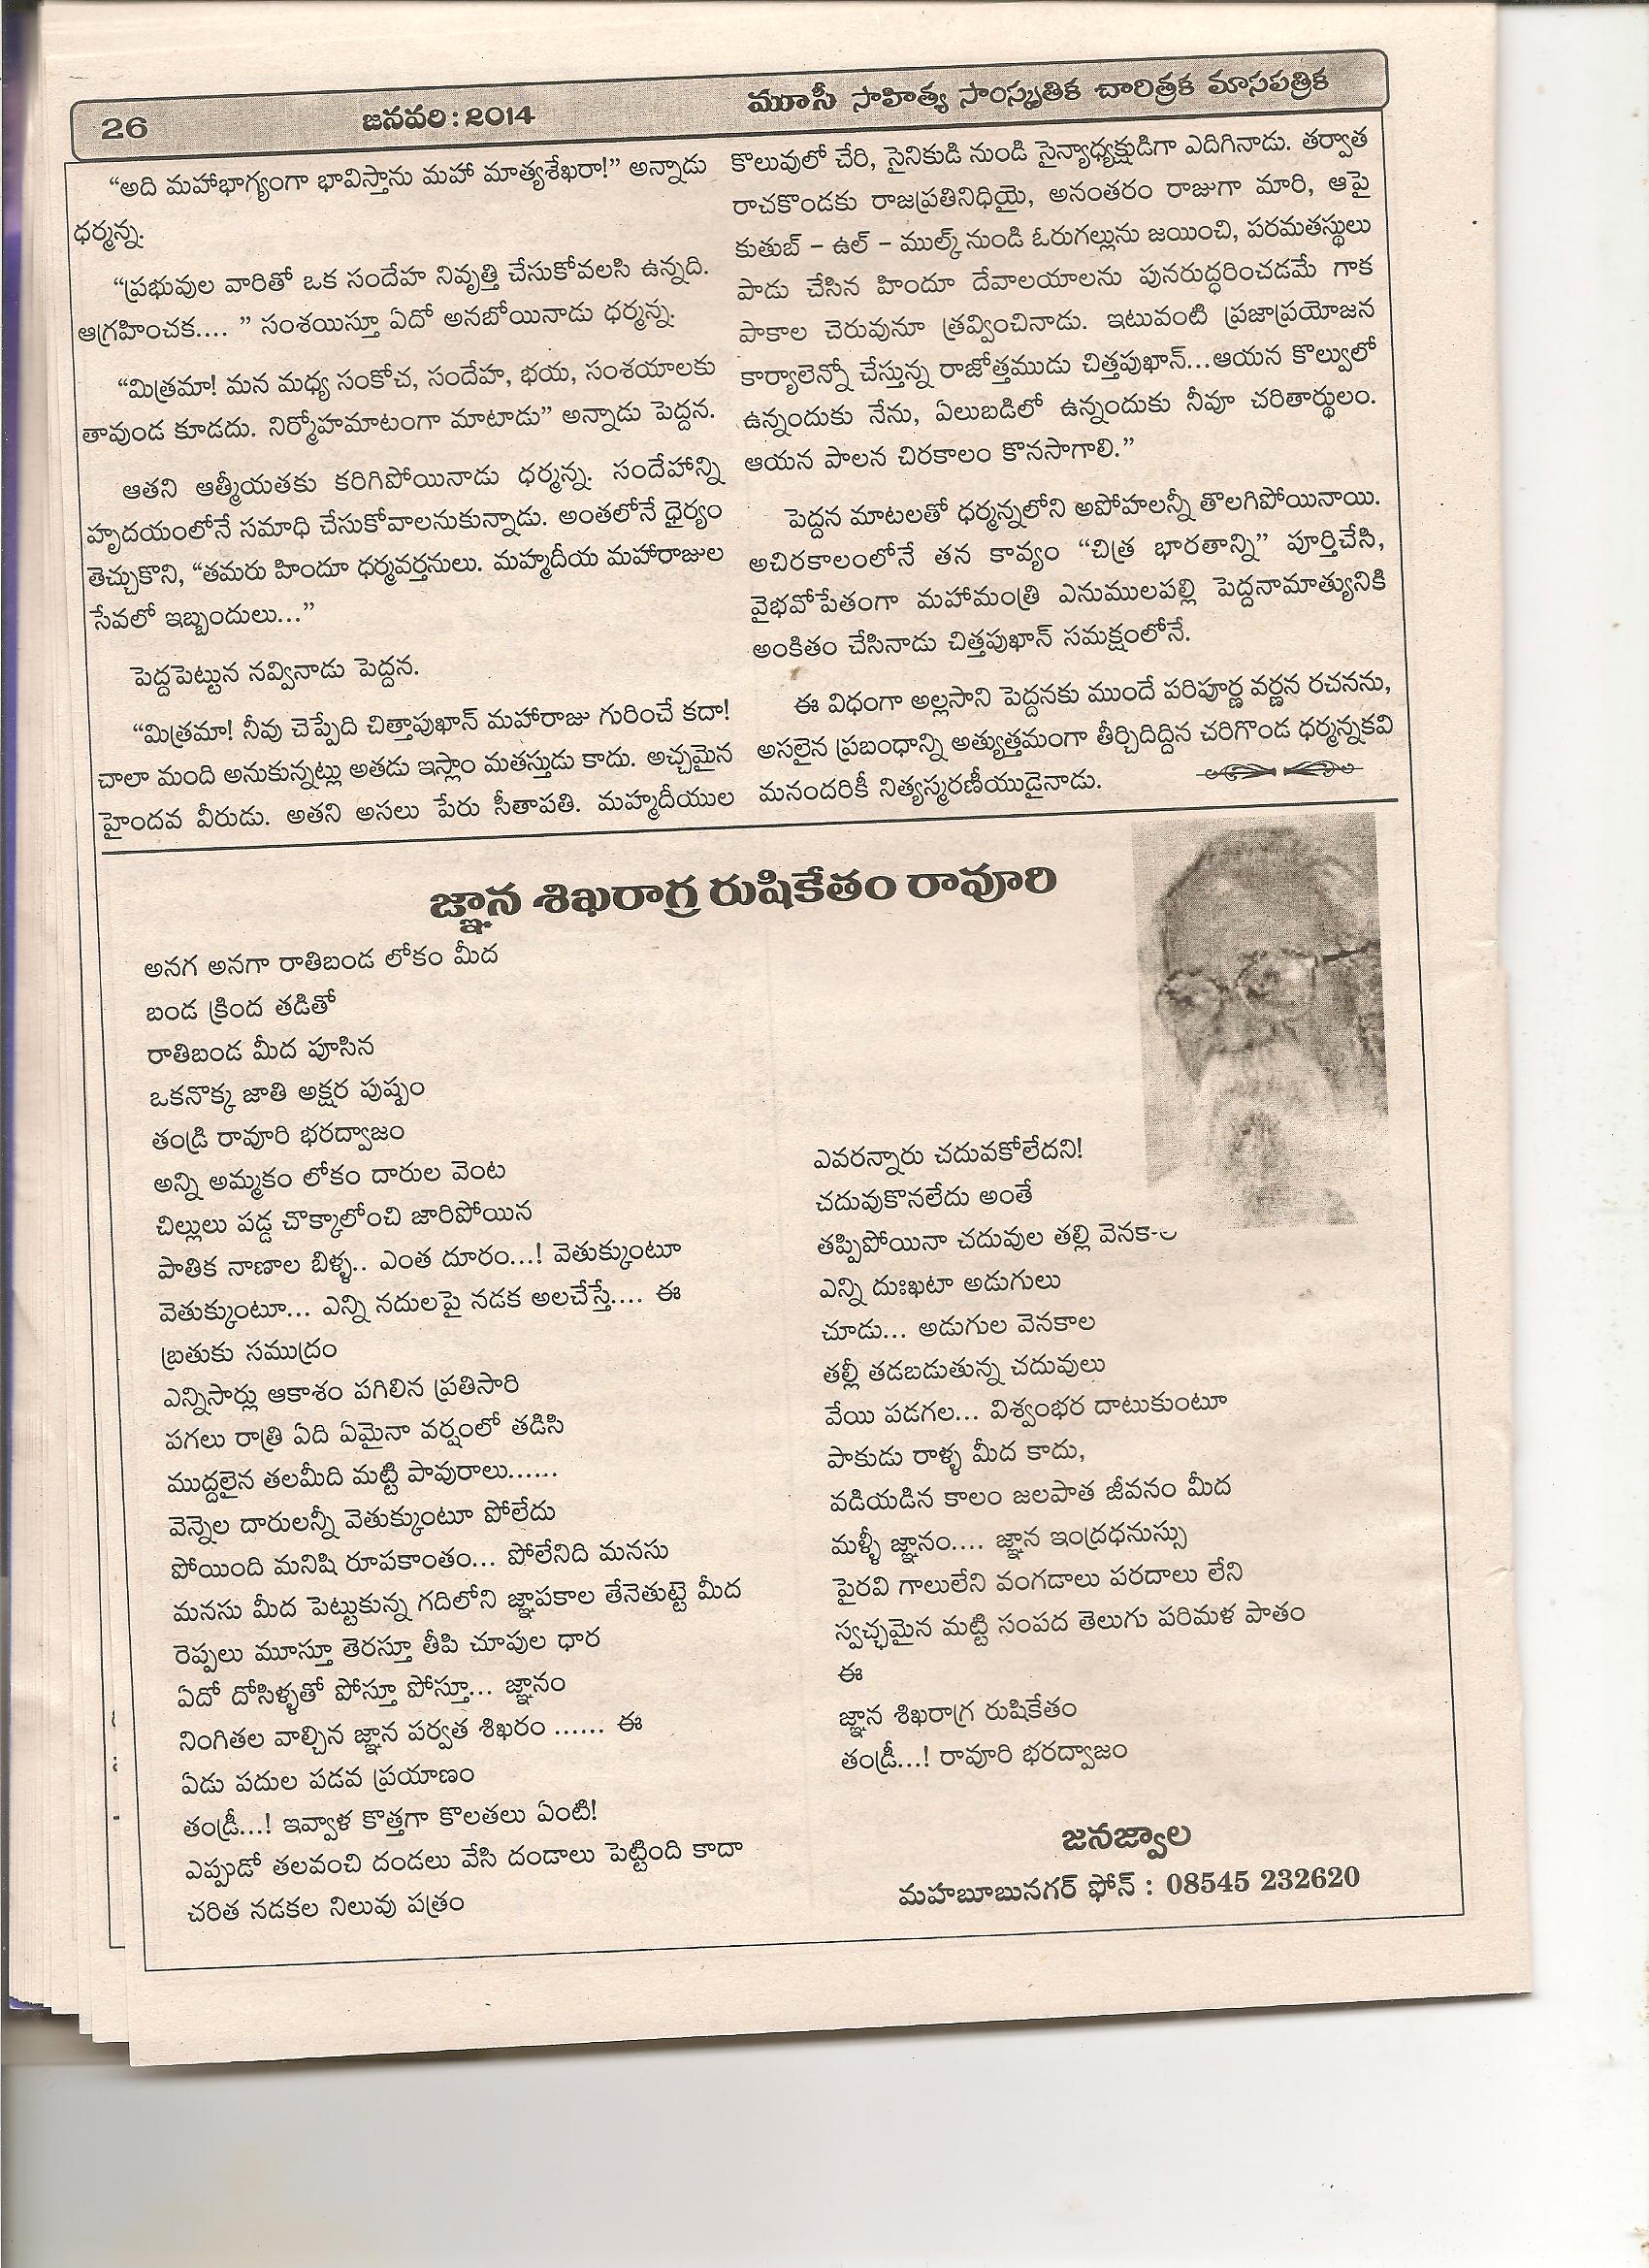 26
జనవరి : 2014
మూసీ సాహిత్య సాంస్కృతిక చారిత్రక మాసపత్రిక
“అది మహాభాగ్యంగా భావిస్తాను మహా మాత్యశేఖరా!” అన్నాడు
ధర్మన్న.
“ప్రభువుల వారితో ఒక సందేహ నివృత్తి చేసుకోవలసి ఉన్నది.
ఆగ్రహించక.... ” సంశయిస్తూ ఏదో అనబోయినాడు ధర్మన్న.
“మిత్రమా! మన మధ్య సంకోచ, సందేహ, భయ, సంశయాలకు
తావుండ కూడదు. నిర్మోహమాటంగా మాటాడు” అన్నాడు పెద్దన.
ఆతని ఆత్మీయతకు కరిగిపోయినాడు ధర్మన్న. సందేహాన్ని
హృదయంలోనే సమాధి చేసుకోవాలనుకున్నాడు. అంతలోనే ధైర్యం
తెచ్చుకొని, “తమరు హిందూ ధర్మవర్తనులు. మహ్మదీయ మహారాజుల
సేవలో ఇబ్బందులు...”
పెద్దపెట్టున నవ్వినాడు పెద్దన.
“మిత్రమా! నీవు చెప్పేది చిత్తాపుఖాన్ మహారాజు గురించే కదా!
చాలా మంది అనుకున్నట్లు అతడు ఇస్లాం మతస్తుడు కాదు. అచ్చమైన
హైందవ వీరుడు. అతని అసలు పేరు సీతాపతి. మహ్మదీయుల
కొలువులో చేరి, సైనికుడి నుండి సైన్యాధ్యక్షుడిగా ఎదిగినాడు. తర్వాత
రాచకొండకు రాజప్రతినిధియై, అనంతరం రాజుగా మారి, ఆపై
కుతుబ్ – ఉల్ – ముల్క్ నుండి ఓరుగల్లును జయించి, పరమతస్థులు
పాడు చేసిన హిందూ దేవాలయాలను పునరుద్ధరించడమే గాక
పాకాల చెరువునూ త్రవ్వించినాడు. ఇటువంటి ప్రజాప్రయోజన
కార్యాలెన్నో చేస్తున్న రాజోత్తముడు చిత్తపుఖాన్...ఆయన కొల్వులో
ఉన్నందుకు నేను, ఏలుబడిలో ఉన్నందుకు నీవూ చరితార్థులం.
ఆయన పాలన చిరకాలం కొనసాగాలి.”
పెద్దన మాటలతో ధర్మన్నలోని అపోహలన్నీ తొలగిపోయినాయి.
అచిరకాలంలోనే తన కావ్యం “చిత్ర భారతాన్ని” పూర్తిచేసి,
వైభవోపేతంగా మహామంత్రి ఎనుములపల్లి పెద్దనామాత్యునికి
అంకితం చేసినాడు చిత్తపుఖాన్ సమక్షంలోనే.
ఈ విధంగా అల్లసాని పెద్దనకు ముందే పరిపూర్ణ వర్ణన రచనను,
అసలైన ప్రబంధాన్ని అత్యుత్తమంగా తీర్చిదిద్దిన చరిగొండ ధర్మన్నకవి
మనందరికీ నిత్యస్మరణీయుడైనాడు.
జ్ఞాన శిఖరాగ్ర రుషికేతం రావూరి
అనగ అనగా రాతిబండ లోకం మీద
బండ క్రింద తడితో
రాతిబండ మీద పూసిన
ఒకనొక్క జాతి అక్షర పుష్పం
తండ్రి రావూరి భరద్వాజం
అన్ని అమ్మకం లోకం దారుల వెంట
చిల్లులు పడ్డ చొక్కాలోంచి జారిపోయిన
పాతిక నాణాల బిళ్ళ.. ఎంత దూరం...! వెతుక్కుంటూ
వెతుక్కుంటూ... ఎన్ని నదులపై నడక అలచేస్తే.... ఈ
బ్రతుకు సముద్రం
ఎన్నిసార్లు ఆకాశం పగిలిన ప్రతిసారి
పగలు రాత్రి ఏది ఏమైనా వర్షంలో తడిసి
ముద్దలైన తలమీది మట్టి పావురాలు......
వెన్నెల దారులన్నీ వెతుక్కుంటూ పోలేదు
పోయింది మనిషి రూపకాంతం... పోలేనిది మనసు
మనసు మీద పెట్టుకున్న గదిలోని జ్ఞాపకాల తేనెతుట్టె మీద
రెప్పలు మూస్తూ తెరస్తూ తీపి చూపుల ధార
ఏదో దోసిళ్ళతో పోస్తూ పోస్తూ... జ్ఞానం
నింగితల వాల్చిన జ్ఞాన పర్వత శిఖరం ...... ఈ
ఏడు పదుల పడవ ప్రయాణం
తండ్రీ...! ఇవ్వాళ కొత్తగా కొలతలు ఏంటి!
ఎప్పుడో తలవంచి దండలు వేసి దండాలు పెట్టింది కాదా
చరిత నడకల నిలువు పత్రం
ఎవరన్నారు చదువకోలేదని!
చదువుకొనలేదు అంతే
తప్పిపోయినా చదువుల తల్లి
ఎన్ని దుఃఖటా అడుగులు
చూడు... అడుగుల వెనకాల
తల్లీ తడబడుతున్న చదువులు
వేయి పడగల... విశ్వంభర దాటుకుంటూ
పాకుడు రాళ్ళ మీద కాదు,
వడియడిన కాలం జలపాత జీవనం మీద
మళ్ళీ జ్ఞానం.... జ్ఞాన ఇంద్రధనుస్సు
పైరవి గాలులేని వంగడాలు పరదాలు లేని
స్వచ్ఛమైన మట్టి సంపద తెలుగు పరిమళ పాతం
ఈ
జ్ఞాన శిఖరాగ్ర రుషికేతం
తండ్రీ...! రావూరి భరద్వాజం
జనజ్వాల
మహబూబునగర్ ఫోన్ : 08545 232620